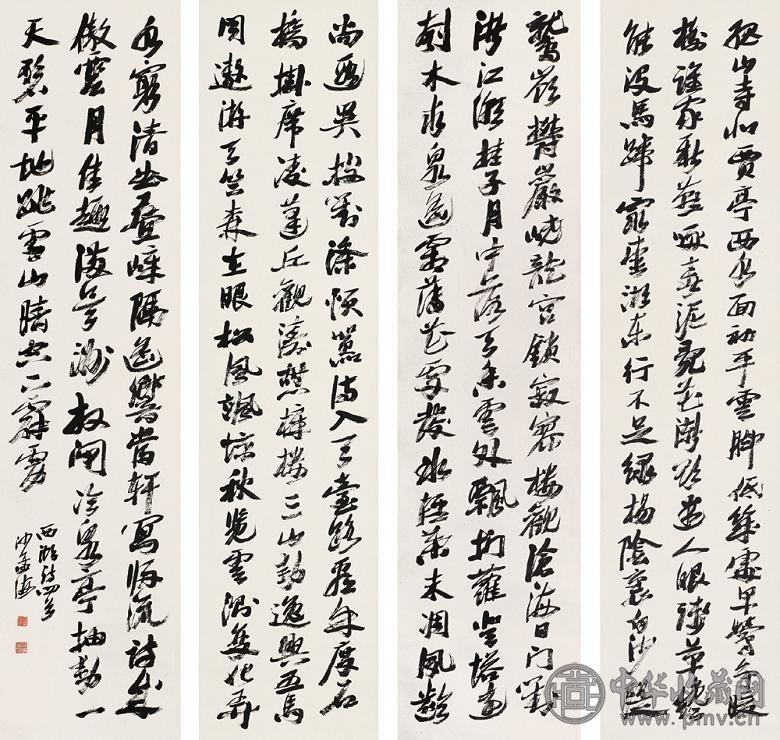 孤山寺北賈亭西水面初平雲脚低幾處早鶯爭暖
樹誰家新燕啄春泥亂花漸欲迷人眼淺草才
能沒馬蹄最愛湖東行不足綠楊陰裏白沙堤
鷲嶺鬱巖嶢龍宮鎖寂寥樓觀滄海日門對
浙江潮桂子月中落天香雲外飄捫蘿登塔遠
刳木取泉遙霜薄花更發冰輕葉未凋夙齡
尚遐異披對滌煩囂待入天臺路看余度石
橋掛席凌蓬丘觀濤憩樟樓三山動逸興五馬
同遨遊天竺森在眼松風颯驚秋覽雲測變化弄
水窮清幽疊嶂隔遙海當軒寫歸流詩成
傲雲月佳趣滿吳洲 放閘冷泉亭抽動一
天碧平地跳雪山晴空下霹靂
西湖詩四首
沙孟海
中华收藏网
www.pmv.cn